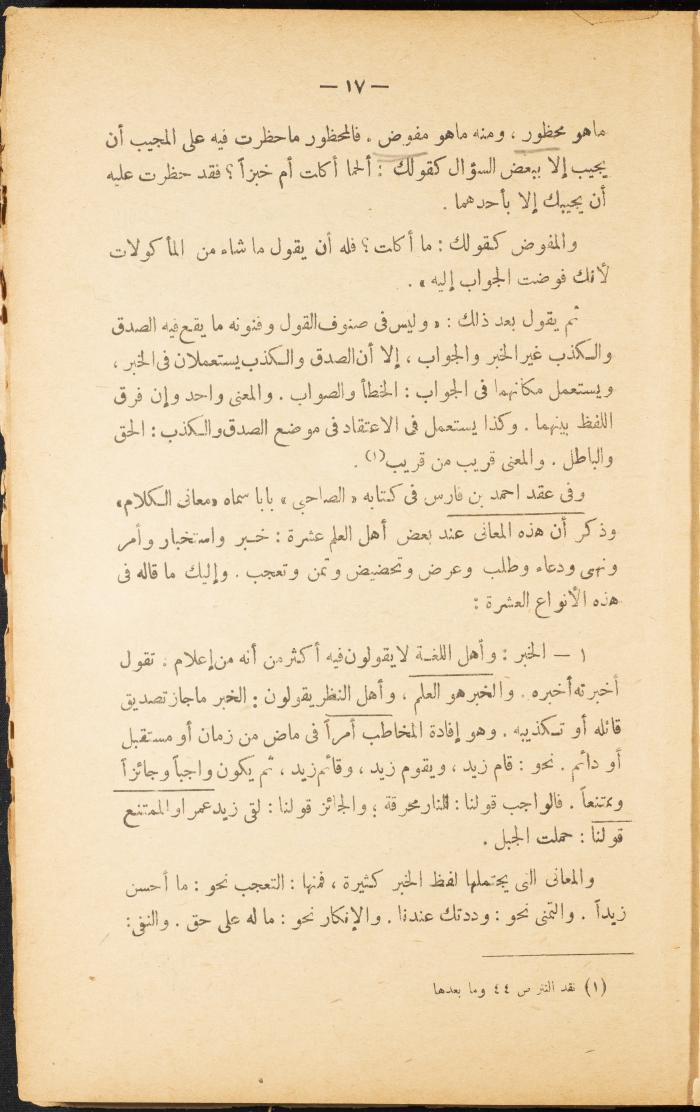 — ١٧ —
ماهو محظور ، ومنه ماهو مفوض . فالمحظور ماحظرت فيه على المجيب أن
يجيب إلا ببعض السؤال كقولك : ألحما أكلت أم خبزاً ؟ فقد حظرت عليه
أن يجيبك إلا بأحدهما .
والمفوض كقولك : ما أكلت ؟ فله أن يقول ما شاء من المأكولات
لأنك فوضت الجواب إليه » .
ثم يقول بعد ذلك : « وليس فى صنوف القول وفنونه ما يقع فيه الصدق
والكذب غير الخبر والجواب ، إلا أن الصدق والكذب يستعملان فى الخبر ،
ويستعمل مكانهما فى الجواب : الخطأ والصواب . والمعنى واحد وإن فرق
اللفظ بينهما . وكذا يستعمل فى الاعتقاد فى موضع الصدق والكذب : الحق
والباطل . والمعنى قريب من قريب (١) .
وفى عقد احمد بن فارس فى كتابه « الصاحبى » بابا سماه «معانى الكلام»
وذكر أن هذه المعانى عند بعض أهل العلم عشرة : خبر واستخبار وأمر
ونهى ودعاء وطلب وعرض وتحضيض وتمن وتعجب . وإليك ما قاله فى
هذه الأنواع العشرة :
١ — الخبر : وأهل اللغة لا يقولون فيه أكثر من أنه من إعلام . تقول
أخبرته أخبره . والخبر هو العلم ، وأهل النظر يقولون : الخبر ما جاز تصديق
قائله أو تكذيبه . وهو إفادة المخاطب أمراً فى ماض من زمان أو مستقبل
أو دائم . نحو : قام زيد ، ويقوم زيد ، وقائم زيد ، ثم يكون واجباً وجائزاً
وممتنعاً . فالواجب قولنا : النار محرقة ؛ والجائز قولنا : لقى زيد عمرا والممتنع
قولنا : حملت الجبل .
والمعانى التى يحتملها لفظ الخبر كثيرة ، فمنها : التعجب نحو : ما أحسن
زيداً . والتمنى نحو : وددتك عندنا . والإنكار نحو : ما له على حق . والنفى :
(١) نقد النثر ص ٤٤ وما بعدها